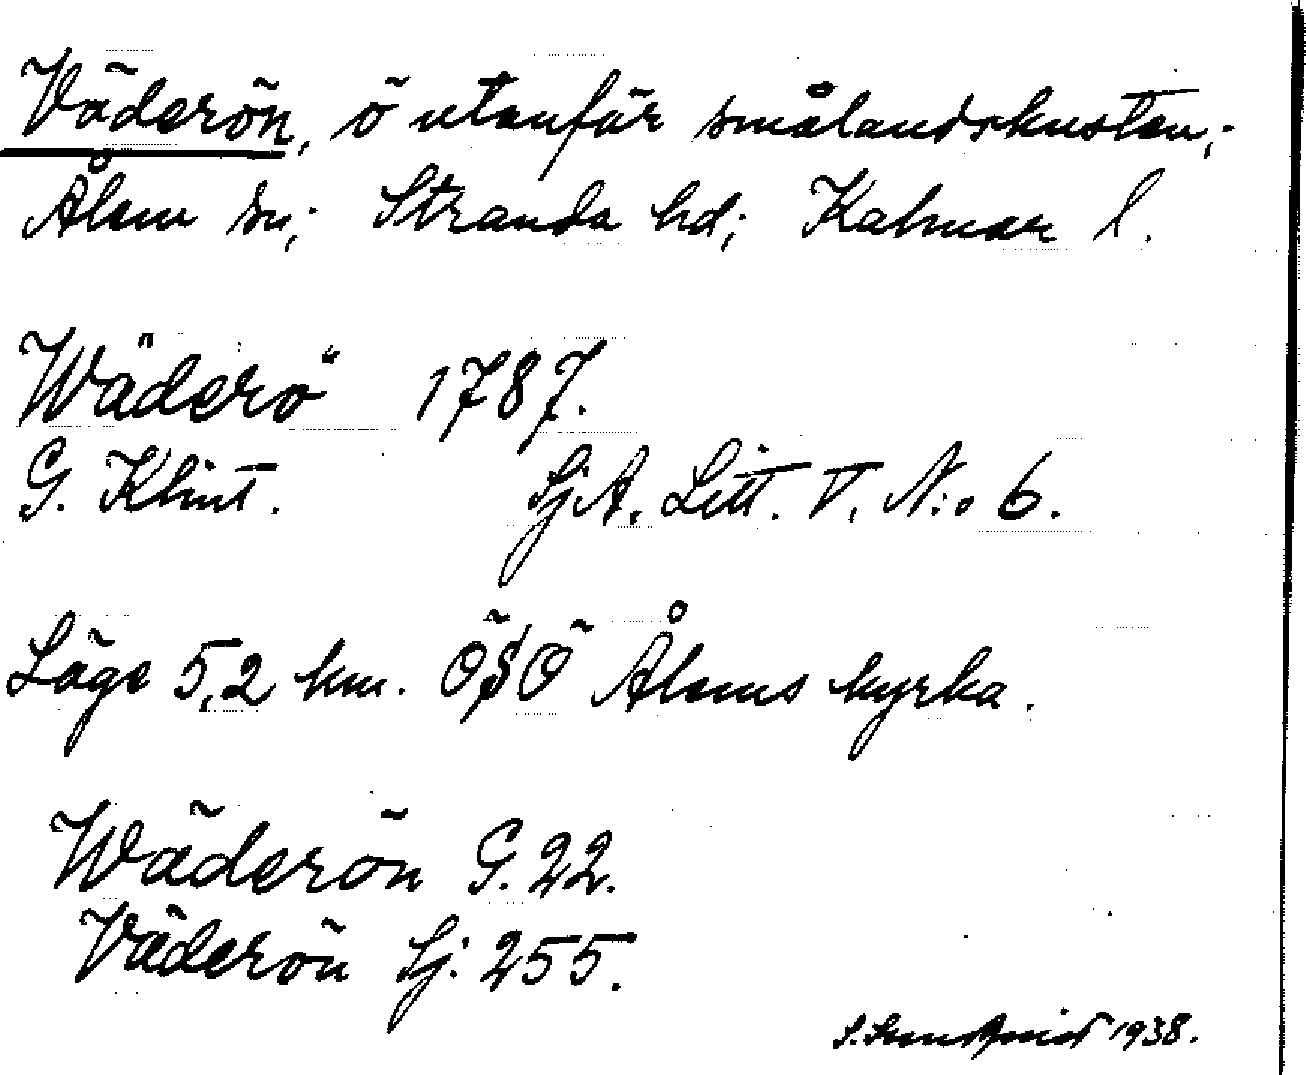 Väderön, ö utanför smålandskusten,;
Ålem sn; Stranda hd; Kalmar l.
Wäderö 1787.
G. Klint. SjA. Litt. V. N:o 6.
Läge 5,2 km. ÖSÖ Ålems kyrka.
Wäderön G. 22.
Väderön Sj. 255.
S. Sundqvist 1938.